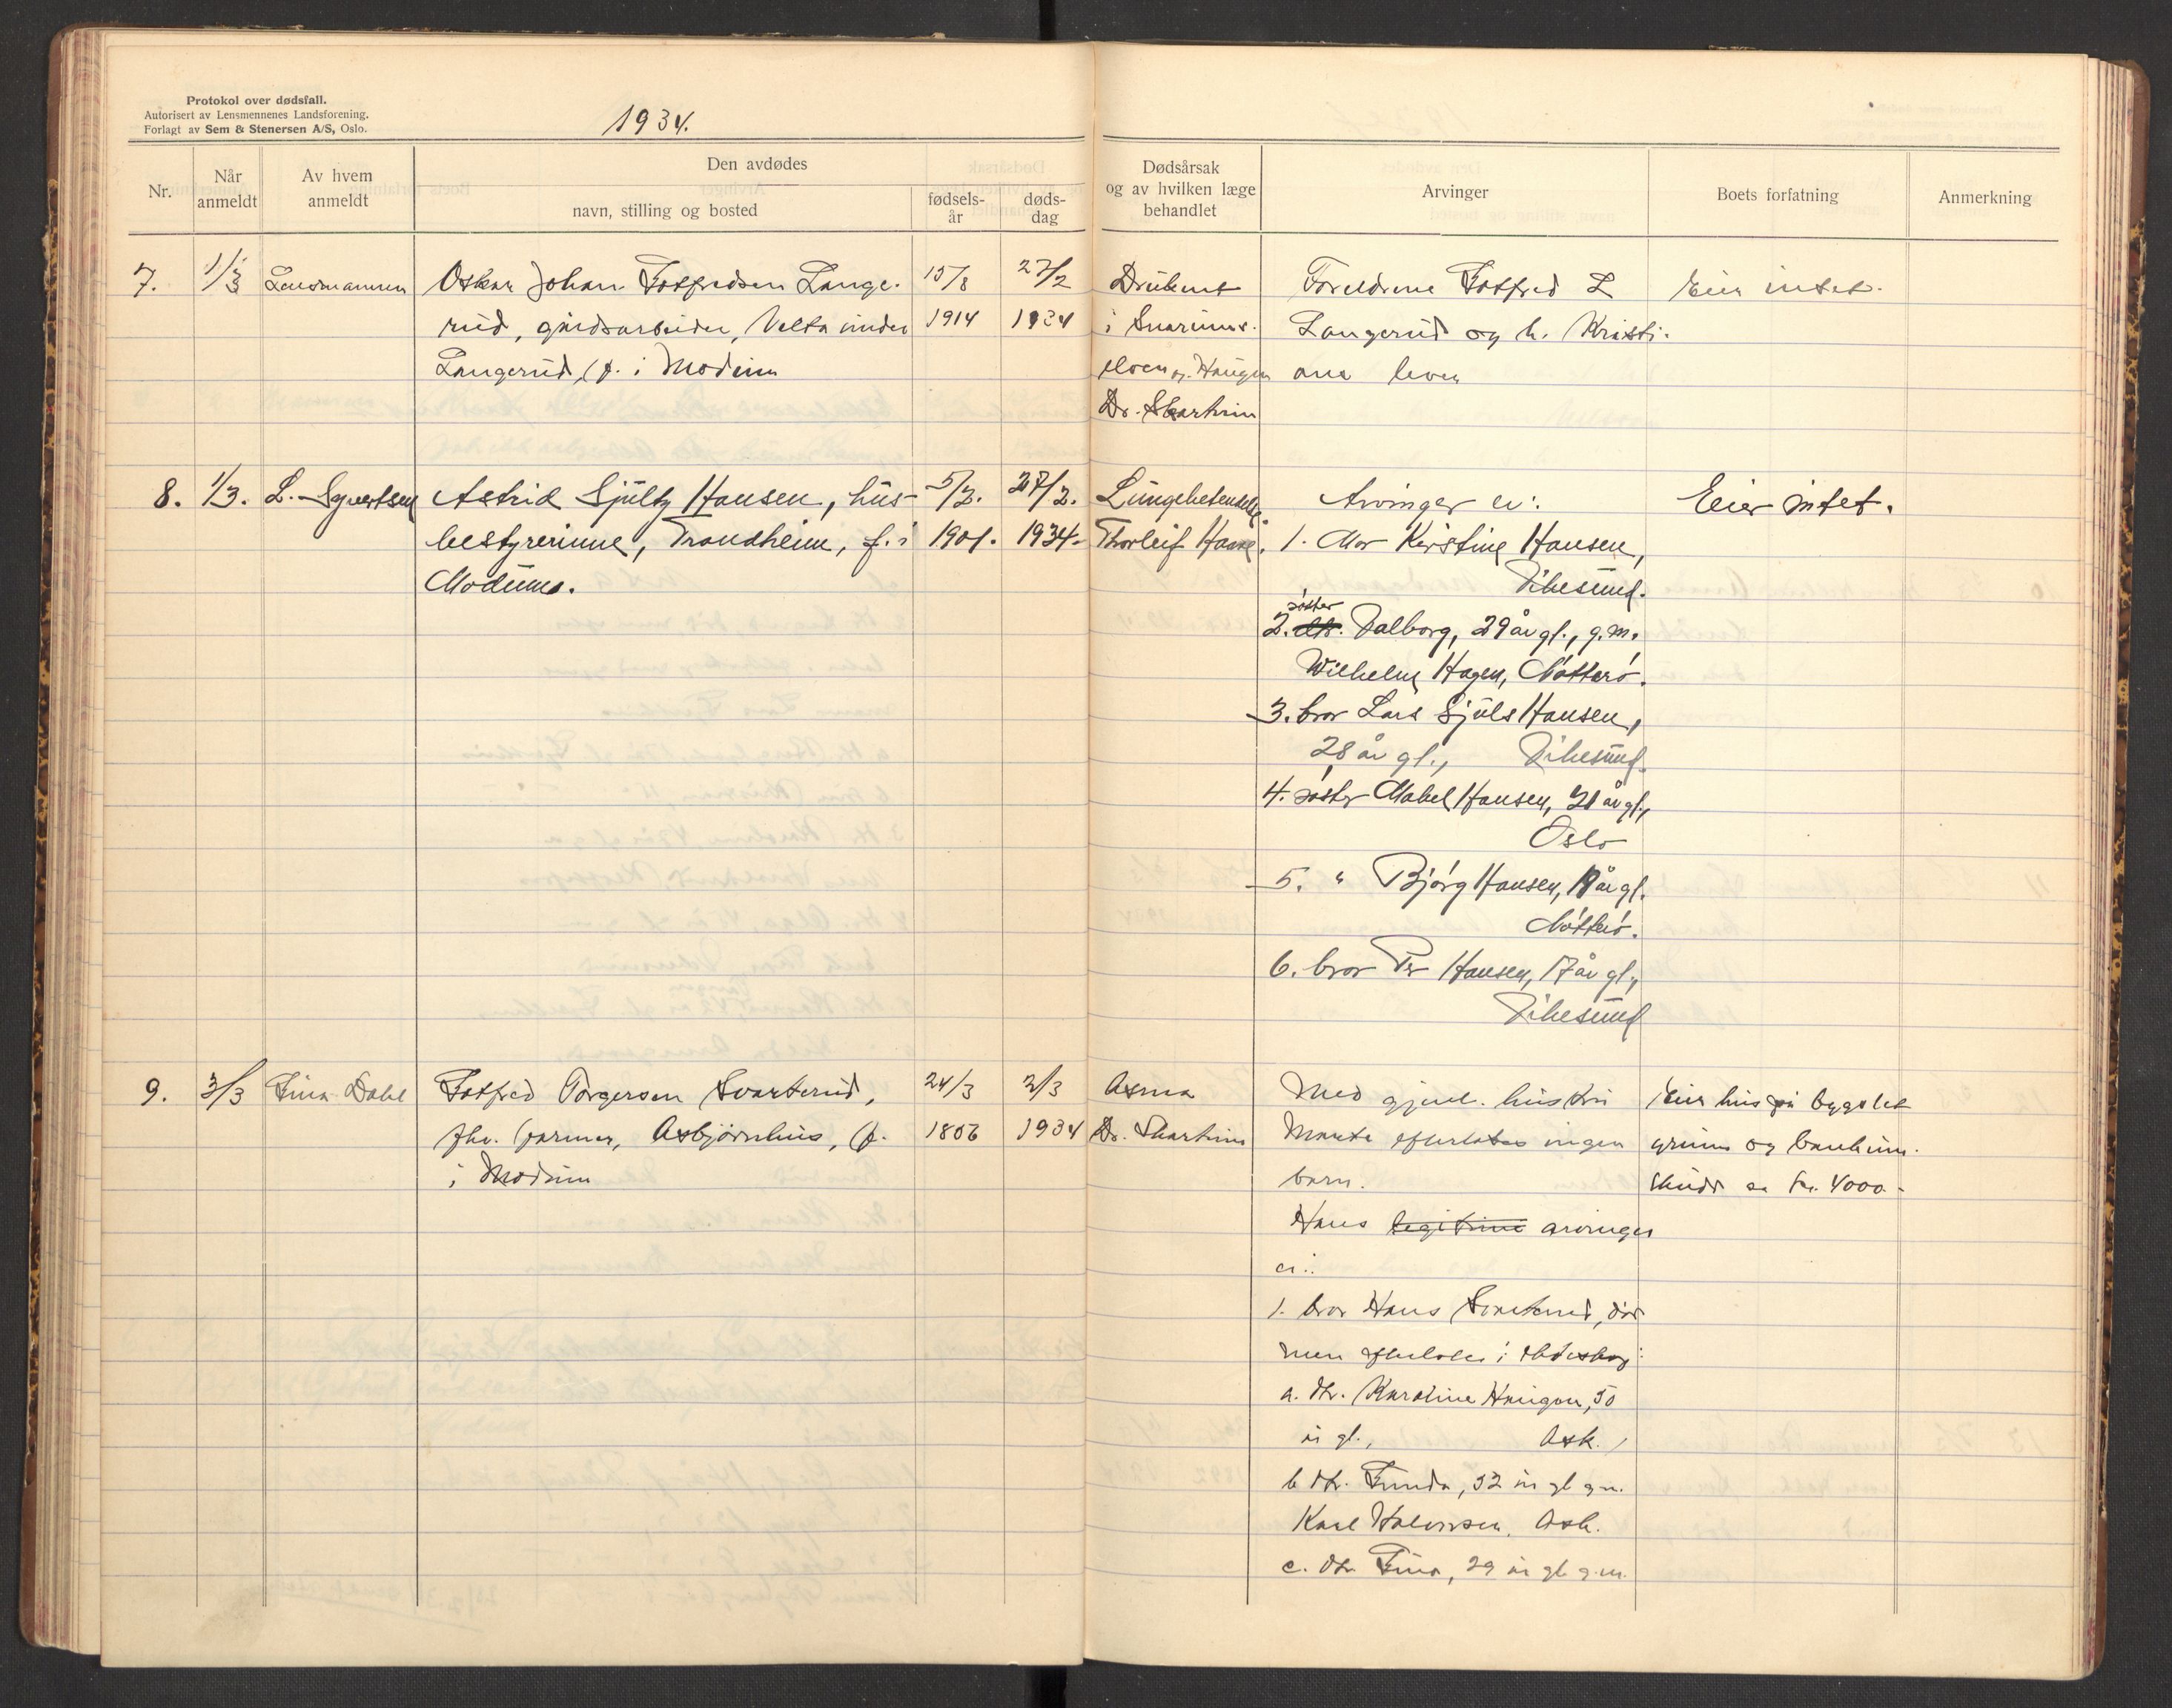 Protokol over dødsfall.
Autorisert av Lensmennenes Landsforening.
Forlagt av Sem & Stenersen A/S, Oslo.
1934.
Nr.
Når anmeldt
Av hvem anmeldt
Den avdødes
navn, stilling og bosted
fødsels-år
døds-dag
Dødsårsak
og av hvilken læge
behandlet
Arvinger
Boets forfatning
Anmerkning
7. 1/3 Lensmannen Oskar Johan Gotfredsen Lange- 15/8 27/2 Druknet Foreldrene Gotfred L Eier intet.
rud, gårdsarbeider, Velta under 1914 1934 i Snarums- Langerud og h. Kristi-
Langerud, f. i Modum elven v. Haugen ane lever
Dr. Skartum
8. 1/3. L. Syvertsen Astrid Hansen, hus- 5/3. 27/2. Arvinger er: Eier intet.
bestyrerinne, Trondheim, f. i 1901. 1934. Thorleif 1. Mor Kirstine Hansen,
Modum. Vikesund.
søster
2. Valborg, 29 år gl., g.m.
Wilhelm Hagen, Nøtterø.
3. bror Lars Hansen,
28 år gl., Vikesund.
4. søster Mabel Hansen, 21 år gl.,
Oslo
5. " Bjørg Hansen, 19 år gl.
Nøtterø.
6. bror Per Hansen, 17 år gl.,
Vikesund
9. 3/3 Dahl Gotfred Torgersen Svarterud, 24/3 2/3 Asma Med gjenl. hustru Eier hus på bygslet
fhv. farmer, Asbjørnhus, f. 1934 Dr. Skartum Marte efterlates ingen grunn og bankinn-
i Modum barn. skudd ca kr. 4000.-
Hans legitime arvinger
er:
1. bror Hans Svarterud, død
men efterlater
a. dtr. Karoline Haugen, 50
år gl., Ask.
b dtr. Gunda, 32 år gl g.m.
Karl Halvorsen, Ask.
c. dtr. 29 år gl g.m.